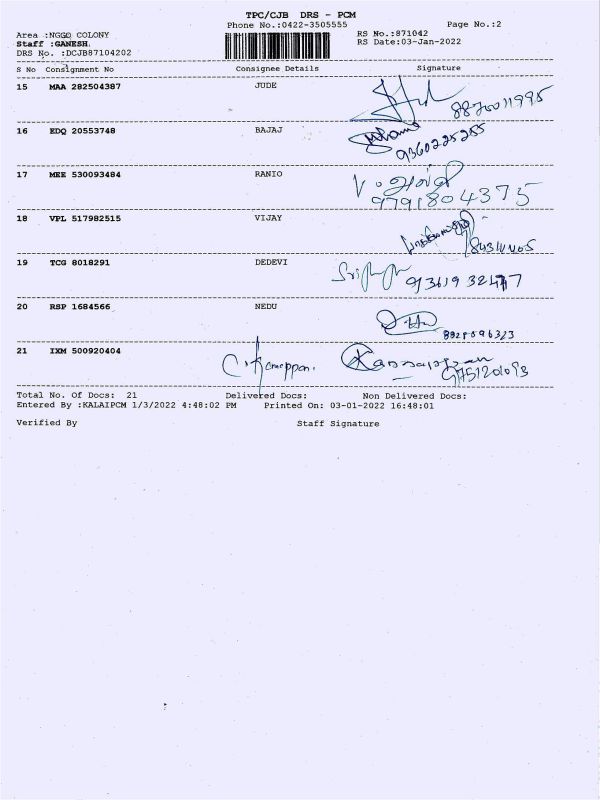 TPC/CJB DRS - PCM
Phone No.:0422-3505555 Page No.:2
Area :NGGO COLONY RS No.:871042
Staff :GANESH. RS Date:03-Jan-2022
DRS No. :DCJB87104202
S No Consignment No Consignee Details Signature
15 MAA 282504387 JUDE
8870011995
16 EDQ 20553748 BAJAJ
9360225255
17 MEE 530093484 RANIO
9791804375
18 VPL 517982515 VIJAY
19 TCG 8018291 DEDEVI
20 RSP 1684566 NEDU
21 IXM 500920404
Total No. Of Docs: 21 Delivered Docs: Non Delivered Docs:
Entered By :KALAIPCM 1/3/2022 4:48:02 PM Printed On: 03-01-2022 16:48:01
Verified By Staff Signature